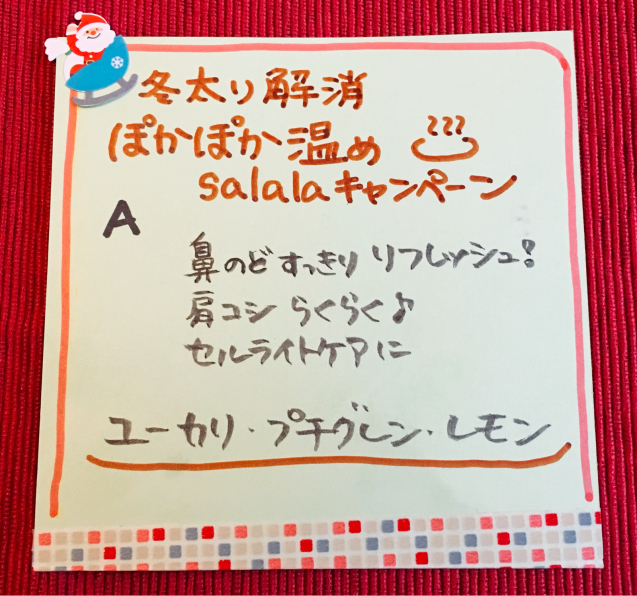 冬太り解消
ぽかぽか温め
salalaキャンペーン
A
鼻のどすっきりリフレッシュ!
肩コシらくらく♪
セルライトケアに
ユーカリ・プチグレン・レモン